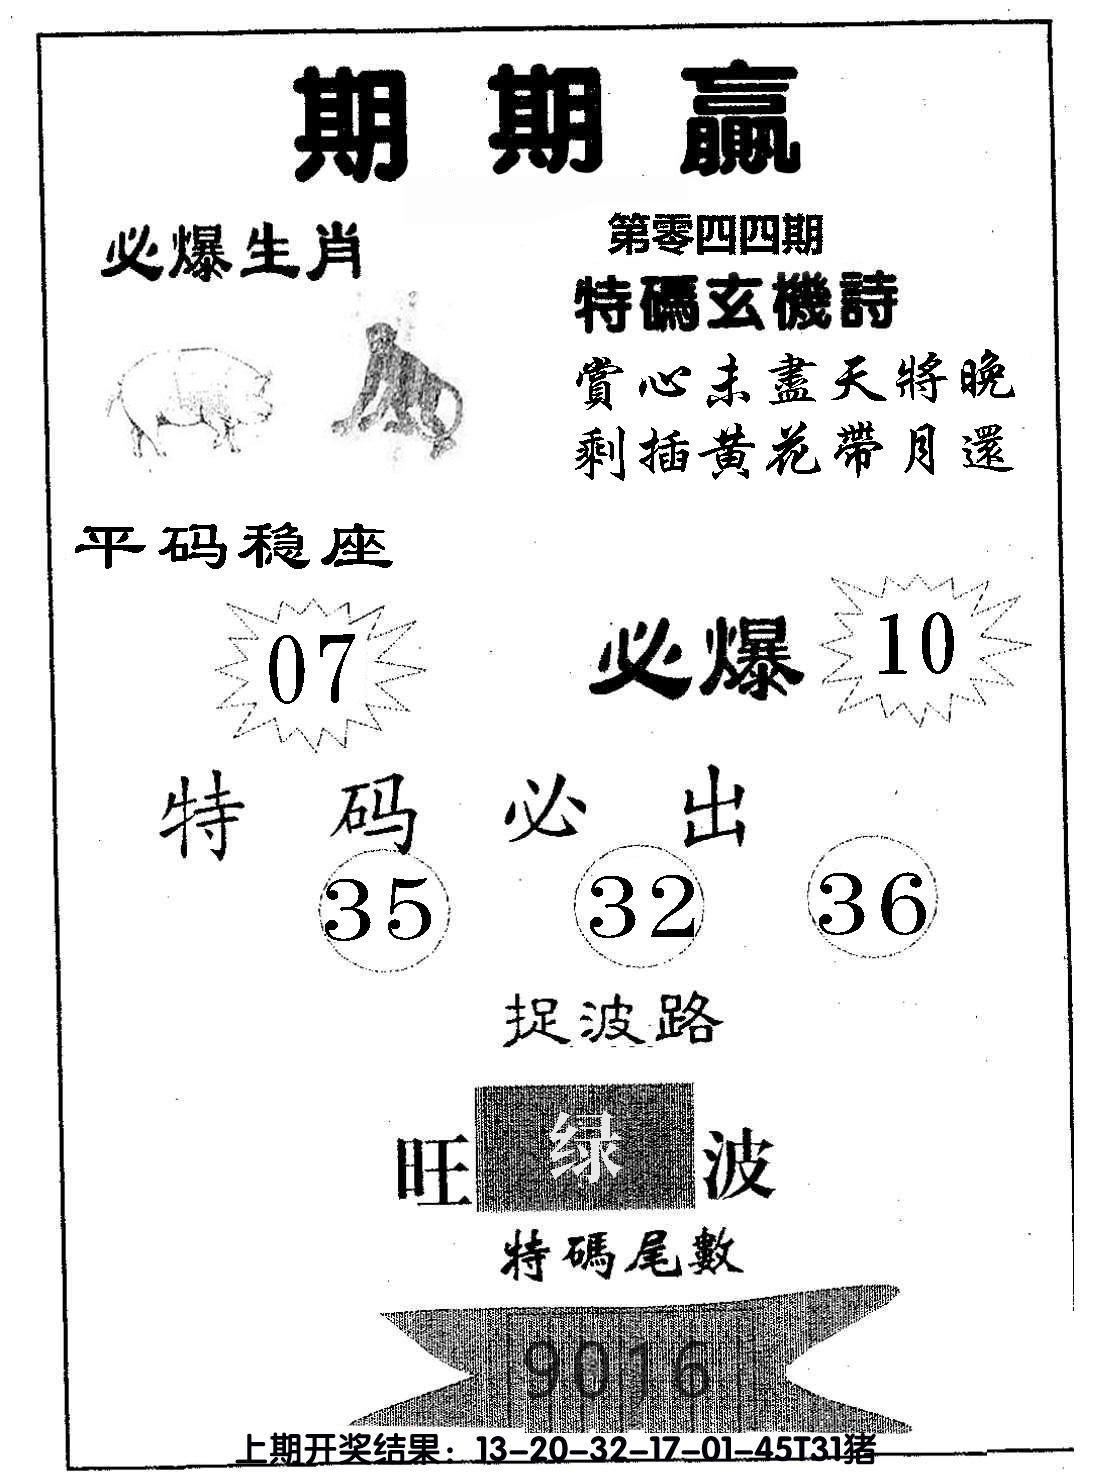 期期贏
必爆生肖
第零四四期
特碼玄機詩
賞心未盡天將晚
剩插黄花帶月還
平码稳座
07
必爆 10
特码必出
35 32 36
捉波路
旺 绿 波
特碼尾數
9016
上期开奖结果：13-20-32-17-01-45T31猪